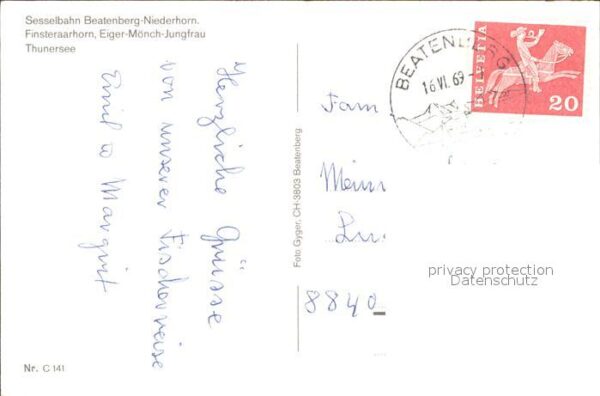 Sesselbahn Beatenberg-Niederhorn.
Finsteraarhorn, Eiger-Mönch-Jungfrau
Thunersee
Herzliche Grüsse
von unserer Fischerreise
Emil u Margrit
Foto Gyger, CH-3803 Beatenberg.
BEATENBERG
16.VI.69
HELVETIA
20
Fam
8840
privacy protection
Datenschutz
Nr. C 141